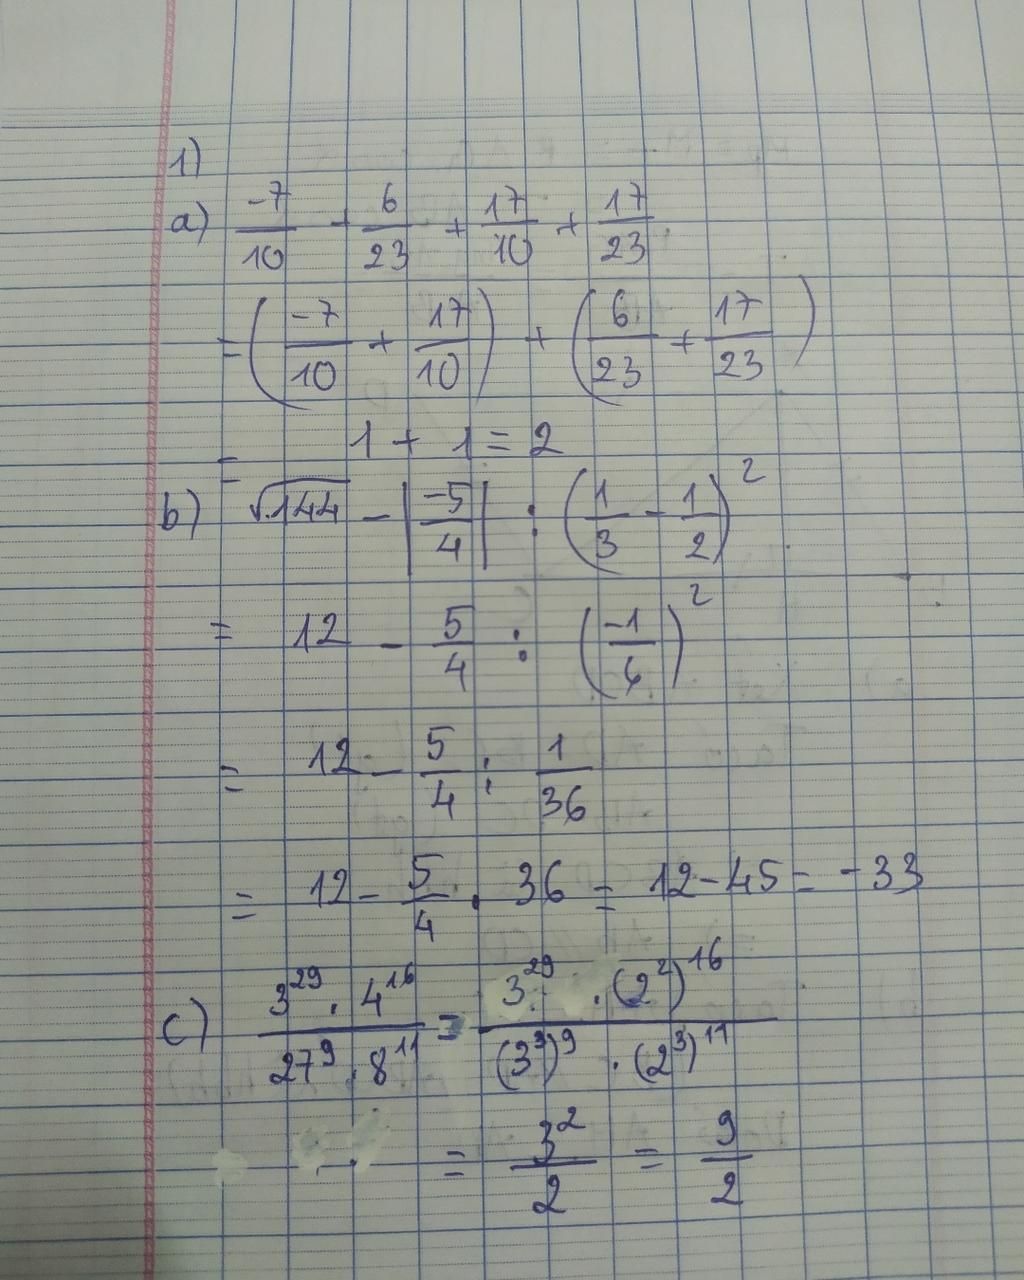 1)
a) -7/10 + 6/23 + 17/10 + 17/23
= (-7/10 + 17/10) + (6/23 + 17/23)
= 1 + 1 = 2
b) √144 - |-5/4| : (1/3 - 1/2)²
= 12 - 5/4 : (-1/6)²
= 12 - 5/4 : 1/36
= 12 - 5/4 . 36 = 12 - 45 = -33
c) 3²⁹ . 4¹⁶ / 27⁹ . 8¹¹ = 3²⁹ . (2²)¹⁶ / (3³)⁹ . (2³)¹¹
= 3²/2 = 9/2